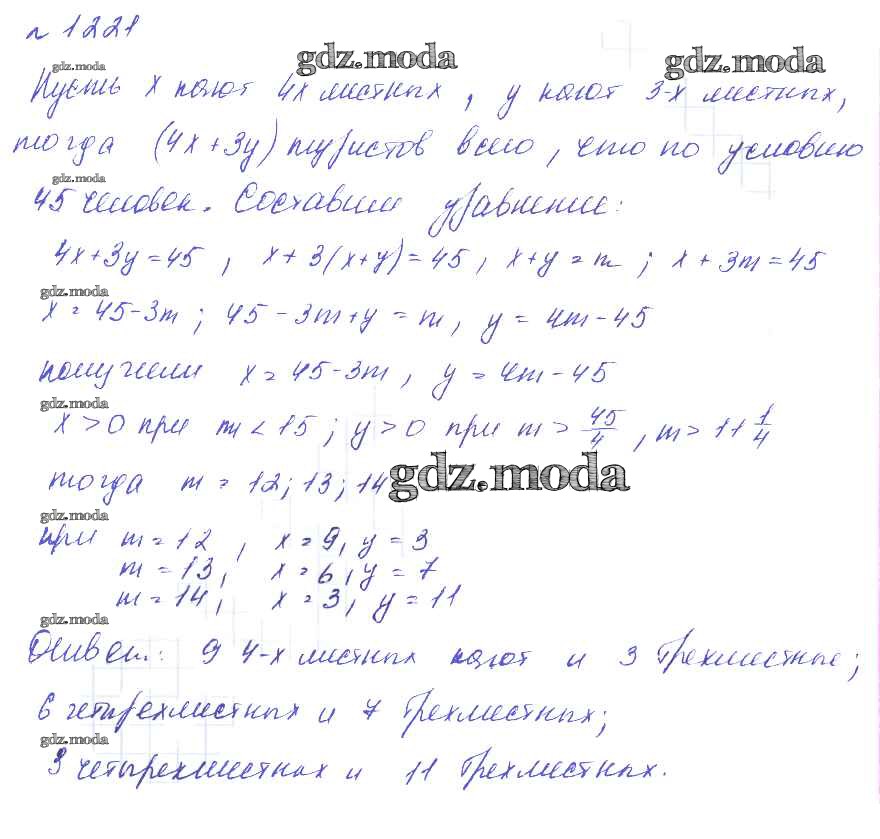 № 1221
gdz.moda gdz.moda gdz.moda
Пусть x кают 4х местных, y кают 3-х местных,
тогда (4x+3y) туристов всего, что по условию
gdz.moda
45 человек. Составим уравнение:
4x+3y=45, x+3(x+y)=45, x+y=m; x+3m=45
gdz.moda
x=45-3m; 45-3m+y=m, y=4m-45
получили x=45-3m, y=4m-45
gdz.moda
x>0 при m<15; y>0 при m>45/4, m>11 1/4
тогда m=12; 13; 14 gdz.moda
gdz.moda
при m=12, x=9, y=3
m=13, x=6, y=7
m=14, x=3, y=11
gdz.moda
Ответ: 9 4-х местных кают и 3 трехместные;
6 четырехместных и 7 трехместных;
gdz.moda
3 четырехместных и 11 трехместных.